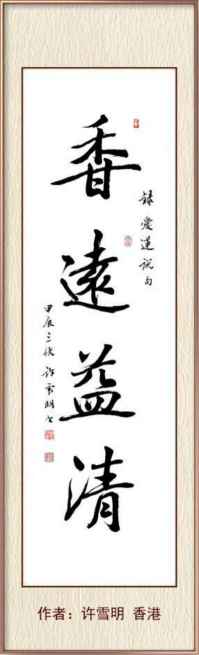 香遠益清
錄愛蓮說句
甲辰三秋許雪明書
作者：许雪明 香港